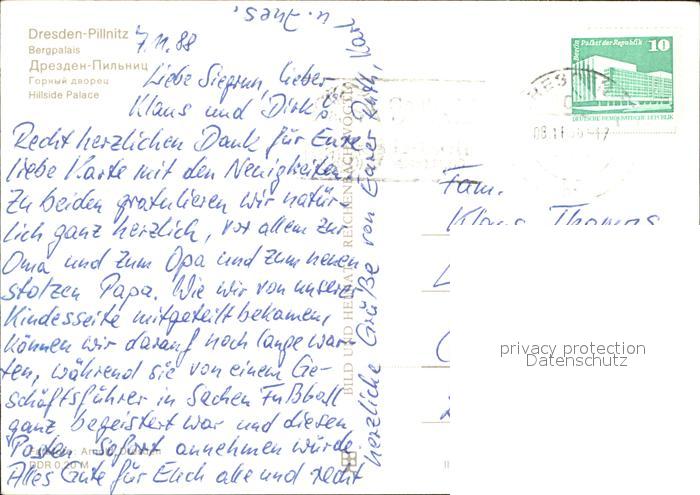 Dresden-Pillnitz
Bergpalais
Дрезден-Пильниц
Горный дворец
Hillside Palace
7.11.88
Liebe Siegrun, lieber
Klaus und Dirk,
Recht herzlichen Dank für Eure
liebe Karte mit den Neuigkeiten.
Zu beiden gratulieren wir natür-
lich ganz herzlich, vor allem zur
Oma und zum Opa und zum neuen
stolzen Papa. Wie wir von unserer
Kindesseite mitgeteilt bekamen,
können wir darauf noch lange war-
ten, während sie von einem Ge-
schäftsführer in Sachen Fußball
ganz begeistert war und diesen
Posten sofort annehmen würde.
Alles Gute für Euch alle und recht
herzliche Grüße von Eurer Ruth, Karl
u. Ines.
DDR 0,20 M
BILD UND HEIMAT REICHENBACH (VOGTL)
Berlin Palast der Republik
10
DEUTSCHE DEMOKRATISCHE REPUBLIK
Fam.
Klaus Thomas
privacy protection
Datenschutz